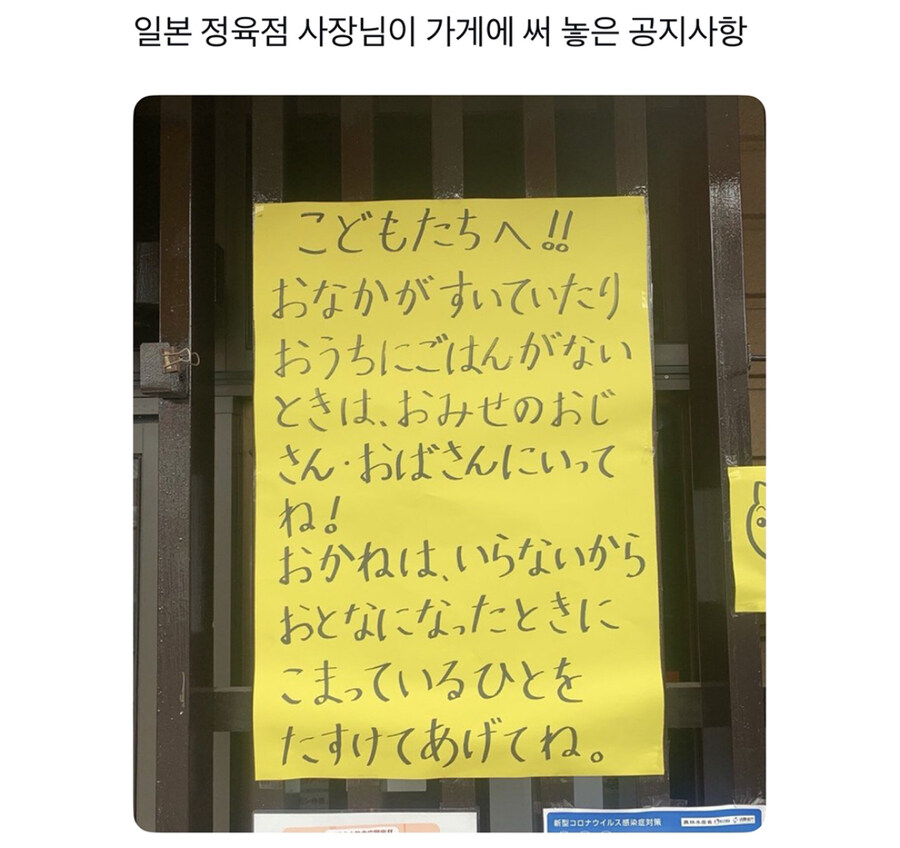 일본 정육점 사장님이 가게에 써 놓은 공지사항
こどもたちへ!!
おなかがすいていたり
おうちにごはんがない
ときは、おみせのおじ
さん・おばさんにいって
ね!
おかねは、いらないから
おとなになったときに
こまっているひとを
たすけてあげてね。
新型コロナウイルス感染症対策